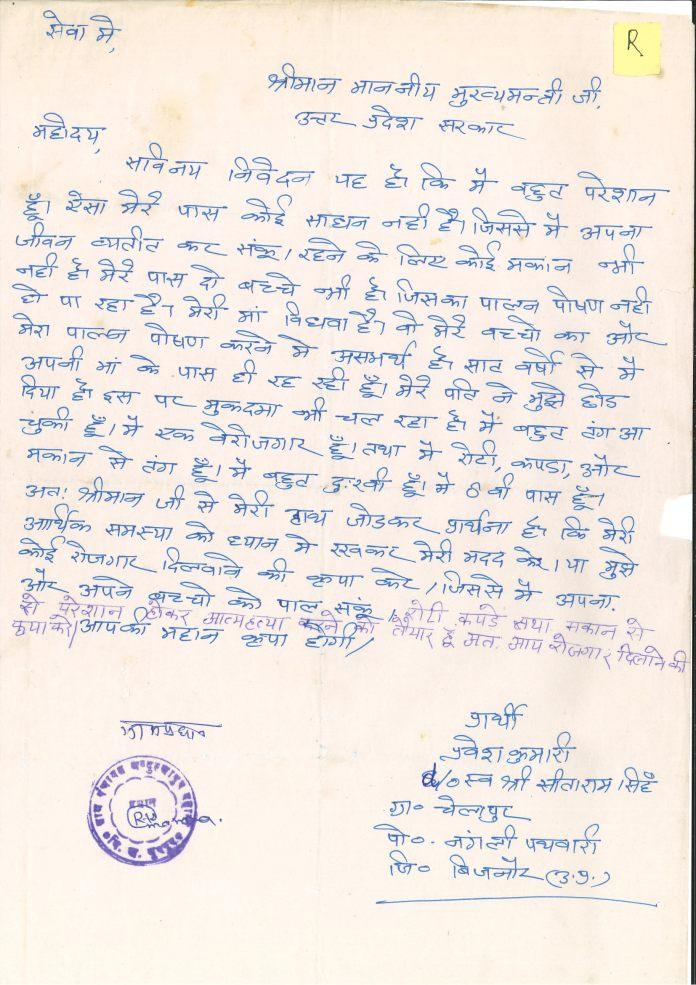 सेवा मे,
R
श्रीमान माननीय मुख्यमन्त्री जी,
उत्तर प्रदेश सरकार
महोदय,
सविनय निवेदन यह है। कि मै बहुत परेशान
हूँ। ऐसा मेरे पास कोई साधन नही है। जिससे मै अपना
जीवन व्यतीत कर संकू। रहने के लिए कोई मकान भी
नही है। मेरे पास दो बच्चे भी है। जिसका पालन पोषण नही
हो पा रहा है। मेरी मां विधवा है। वो मेरे बच्चो का और
मेरा पालन पोषण करने मे असमर्थ है। सात वर्षो से मै
अपनी मां के पास ही रह रही हूँ। मेरे पति ने मुझे छोड
दिया है। इस पर मुकदमा भी चल रहा है। मै बहुत तंग आ
चुकी हूँ। मै एक बेरोजगार हूँ। तथा मै रोटी, कपडा, और
मकान से तंग हूँ। मै बहुत दुःखी हूँ। मै 8 वी पास हूँ।
अतः श्रीमान जी से मेरी हाथ जोडकर प्रार्थना है। कि मेरी
आर्थिक समस्या को ध्यान मे रखकर मेरी मदद करे। या मुझे
कोई रोजगार दिलवाने की कृपा करे। जिससे मै अपना.
और अपने बच्चो को पाल संकू। रोटी कपडे तथा मकान से
से परेशान होकर आत्महत्या करने को तैयार हूँ अतः आप रोजगार दिलाने की
कृपा करे। आपकी महान कृपा होगी।
प्रार्थी
प्रवेश कुमारी
d/० स्व श्री सीताराम सिहँ
ग्रा० चेलापुर
पो०. नंगली पथवारी
जि० बिजनौर (उ.प्र.)
ग्रामप्रधान
प्रधान